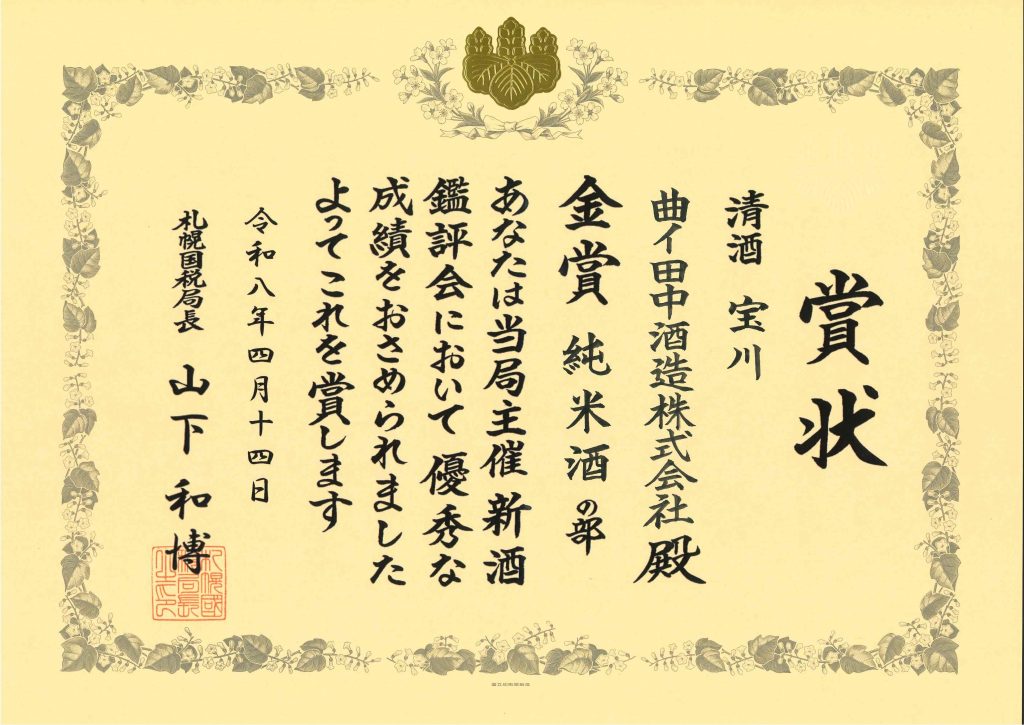 賞状
清酒 宝川
曲イ田中酒造株式会社殿
金賞 純米酒の部
あなたは当局主催新酒
鑑評会において優秀な
成績をおさめられました
よってこれを賞します
令和八年四月十四日
札幌国税局長 山下和博